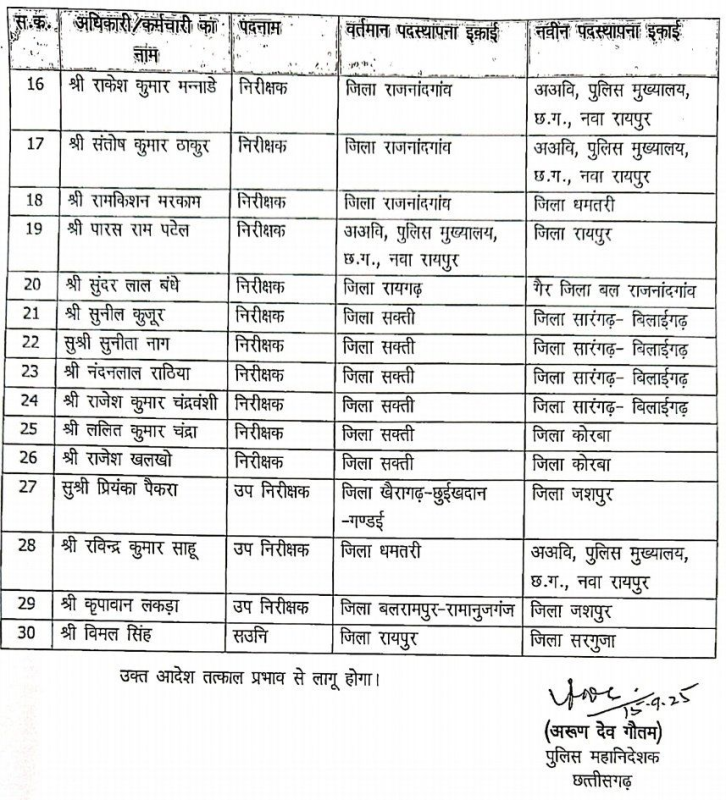 स.क. अधिकारी/कर्मचारी का पदनाम वर्तमान पदस्थापना इकाई नवीन पदस्थापना इकाई
नाम
16 श्री राकेश कुमार मन्नाडे निरीक्षक जिला राजनांदगांव अअवि, पुलिस मुख्यालय,
छ.ग., नवा रायपुर
17 श्री संतोष कुमार ठाकुर निरीक्षक जिला राजनांदगांव अअवि, पुलिस मुख्यालय,
छ.ग., नवा रायपुर
18 श्री रामकिशन मरकाम निरीक्षक जिला राजनांदगांव जिला धमतरी
19 श्री पारस राम पटेल निरीक्षक अअवि, पुलिस मुख्यालय, जिला रायपुर
छ.ग., नवा रायपुर
20 श्री सुंदर लाल बंधे निरीक्षक जिला रायगढ़ गैर जिला बल राजनांदगांव
21 श्री सुनील कुजूर निरीक्षक जिला सक्ती जिला सारंगढ़- बिलाईगढ़
22 सुश्री सुनीता नाग निरीक्षक जिला सक्ती जिला सारंगढ़- बिलाईगढ़
23 श्री नंदनलाल राठिया निरीक्षक जिला सक्ती जिला सारंगढ़- बिलाईगढ़
24 श्री राजेश कुमार चंद्रवंशी निरीक्षक जिला सक्ती जिला सारंगढ़- बिलाईगढ़
25 श्री ललित कुमार चंद्रा निरीक्षक जिला सक्ती जिला कोरबा
26 श्री राजेश खलखो निरीक्षक जिला सक्ती जिला कोरबा
27 सुश्री प्रियंका पैकरा उप निरीक्षक जिला खैरागढ़-छुईखदान जिला जशपुर
-गण्डई
28 श्री रविन्द्र कुमार साहू उप निरीक्षक जिला धमतरी अअवि, पुलिस मुख्यालय,
छ.ग., नवा रायपुर
29 श्री कृपावान लकड़ा उप निरीक्षक जिला बलरामपुर-रामानुजगंज जिला जशपुर
30 श्री विमल सिंह सउनि जिला रायपुर जिला सरगुजा
उक्त आदेश तत्काल प्रभाव से लागू होगा।
15-9-25
(अरूण देव गौतम)
पुलिस महानिदेशक
छत्तीसगढ़